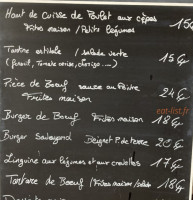 Haut de cuisse de Poulet aux cèpes 15
Frites maison / Petits légumes
Tartine estivale / Salade verte 15 €
(Basilic, Tomate cerise, chorizo...)
Pièce de Boeuf sauce au Poivre 24 €
Frites maison
eat-list.fr
Burger de Boeuf Frites maison 18 €
Burger Savoyard Beignet P. de terre 20 €
Linguine aux légumes et aux crevettes 17 €
Tartare de Boeuf / Frites maison / salade 18 €